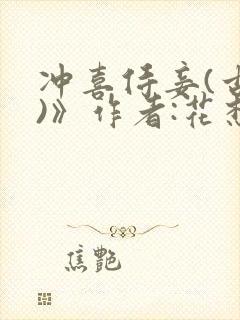 冲喜侍妾(古
)》作者:花
焦艷